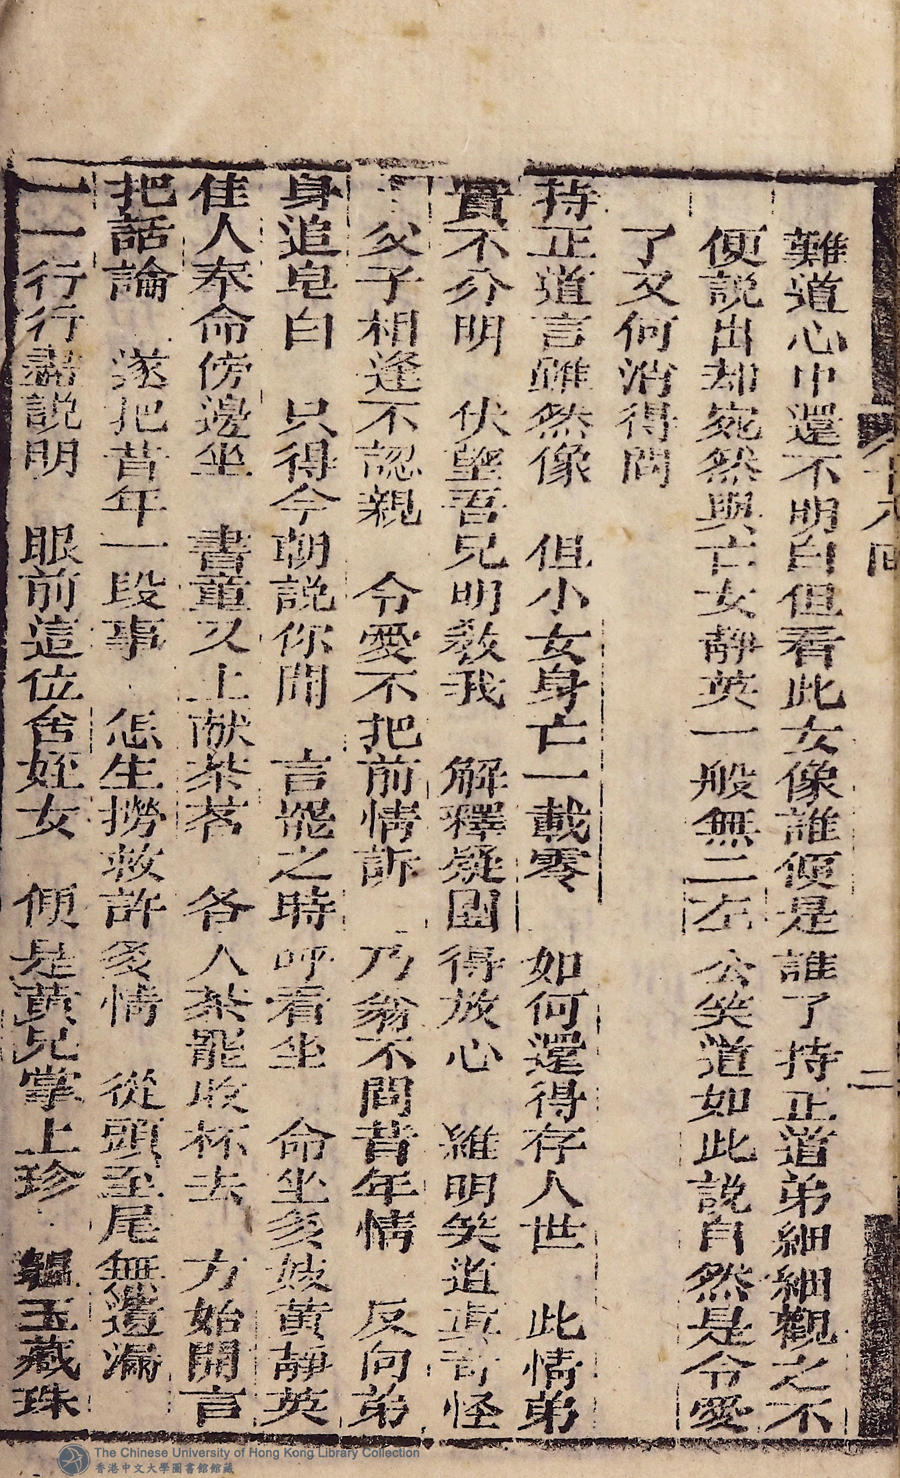 十八回
二
難道心中還不明白但看此女像誰便是誰了持正道弟細細觀之不
便說出却宛然與亡女靜英一般無二左公笑道如此說自然是令愛
了又何消得問
持正道言雖然像　但小女身亡一載零　如何還得存人世　此情弟
實不分明　伏望吾兄明敎我　解釋疑團得放心　維明笑道眞奇怪
父子相逢不認親　令愛不把前情訴　乃翁不問昔年情　反向弟
身追皂白　只得今朝說你聞　言罷之時呼看坐　命坐多妓黃靜英
佳人奉命傍邊坐　書童又上献茶茗　各人茶罷收杯去　方始開言
把話論　遂把昔年一段事　怎生撈救許多情　從頭至尾無遺漏
一一行行盡說明　眼前這位舍姪女　便是黃兄掌上珍　韞玉藏珠
The Chinese University of Hong Kong Library Collection
香港中文大學圖書館館藏